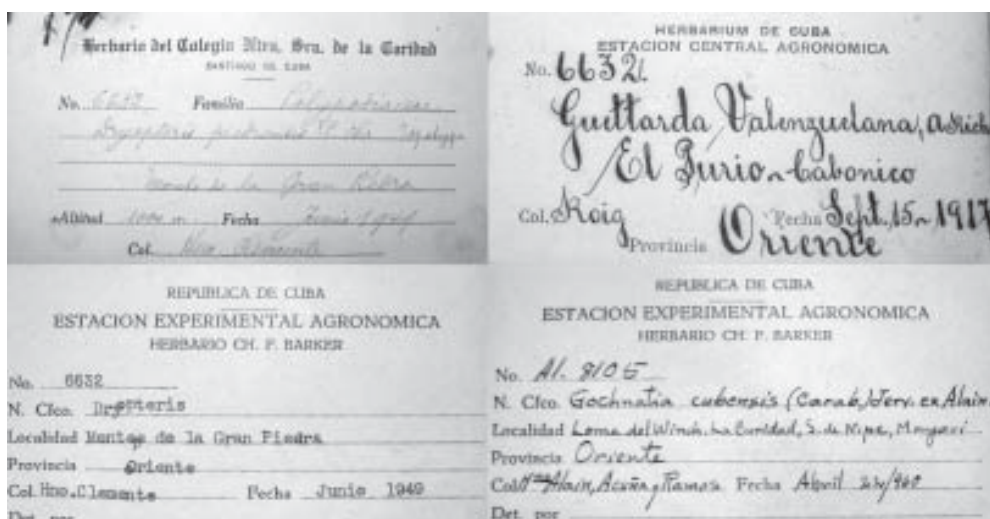 Herbario del Colegio Ntra. Sra. de la Caridad
SANTIAGO DE CUBA
No. Familia
Dryopteris
Monte de la Gran Piedra
Altitud 1000 m Fecha Junio 1949
Col. Hno. Clemente
HERBARIUM DE CUBA
ESTACION CENTRAL AGRONOMICA
No. 6632
Guettarda Valenzuelana, A. Rich
El Purio - Cabonico
Col. Roig Fecha Sept. 15 - 1917
Provincia Oriente
REPUBLICA DE CUBA
ESTACION EXPERIMENTAL AGRONOMICA
HERBARIO CH. F. BARKER
No. 6632
N. Cfco. Dryopteris
Localidad Montes de la Gran Piedra
Provincia Oriente
Col. Hno. Clemente Fecha Junio 1949
Det. por
REPUBLICA DE CUBA
ESTACION EXPERIMENTAL AGRONOMICA
HERBARIO CH. F. BARKER
No. Al. 8105
N. Cfco. Gochnatia cubensis (Carab.) Jerv. ex Alain
Localidad Loma del Winch, La Caridad, S. de Nipe, Mayarí
Provincia Oriente
Col. Alain, Acuña y Ramos Fecha Abril
Det. por